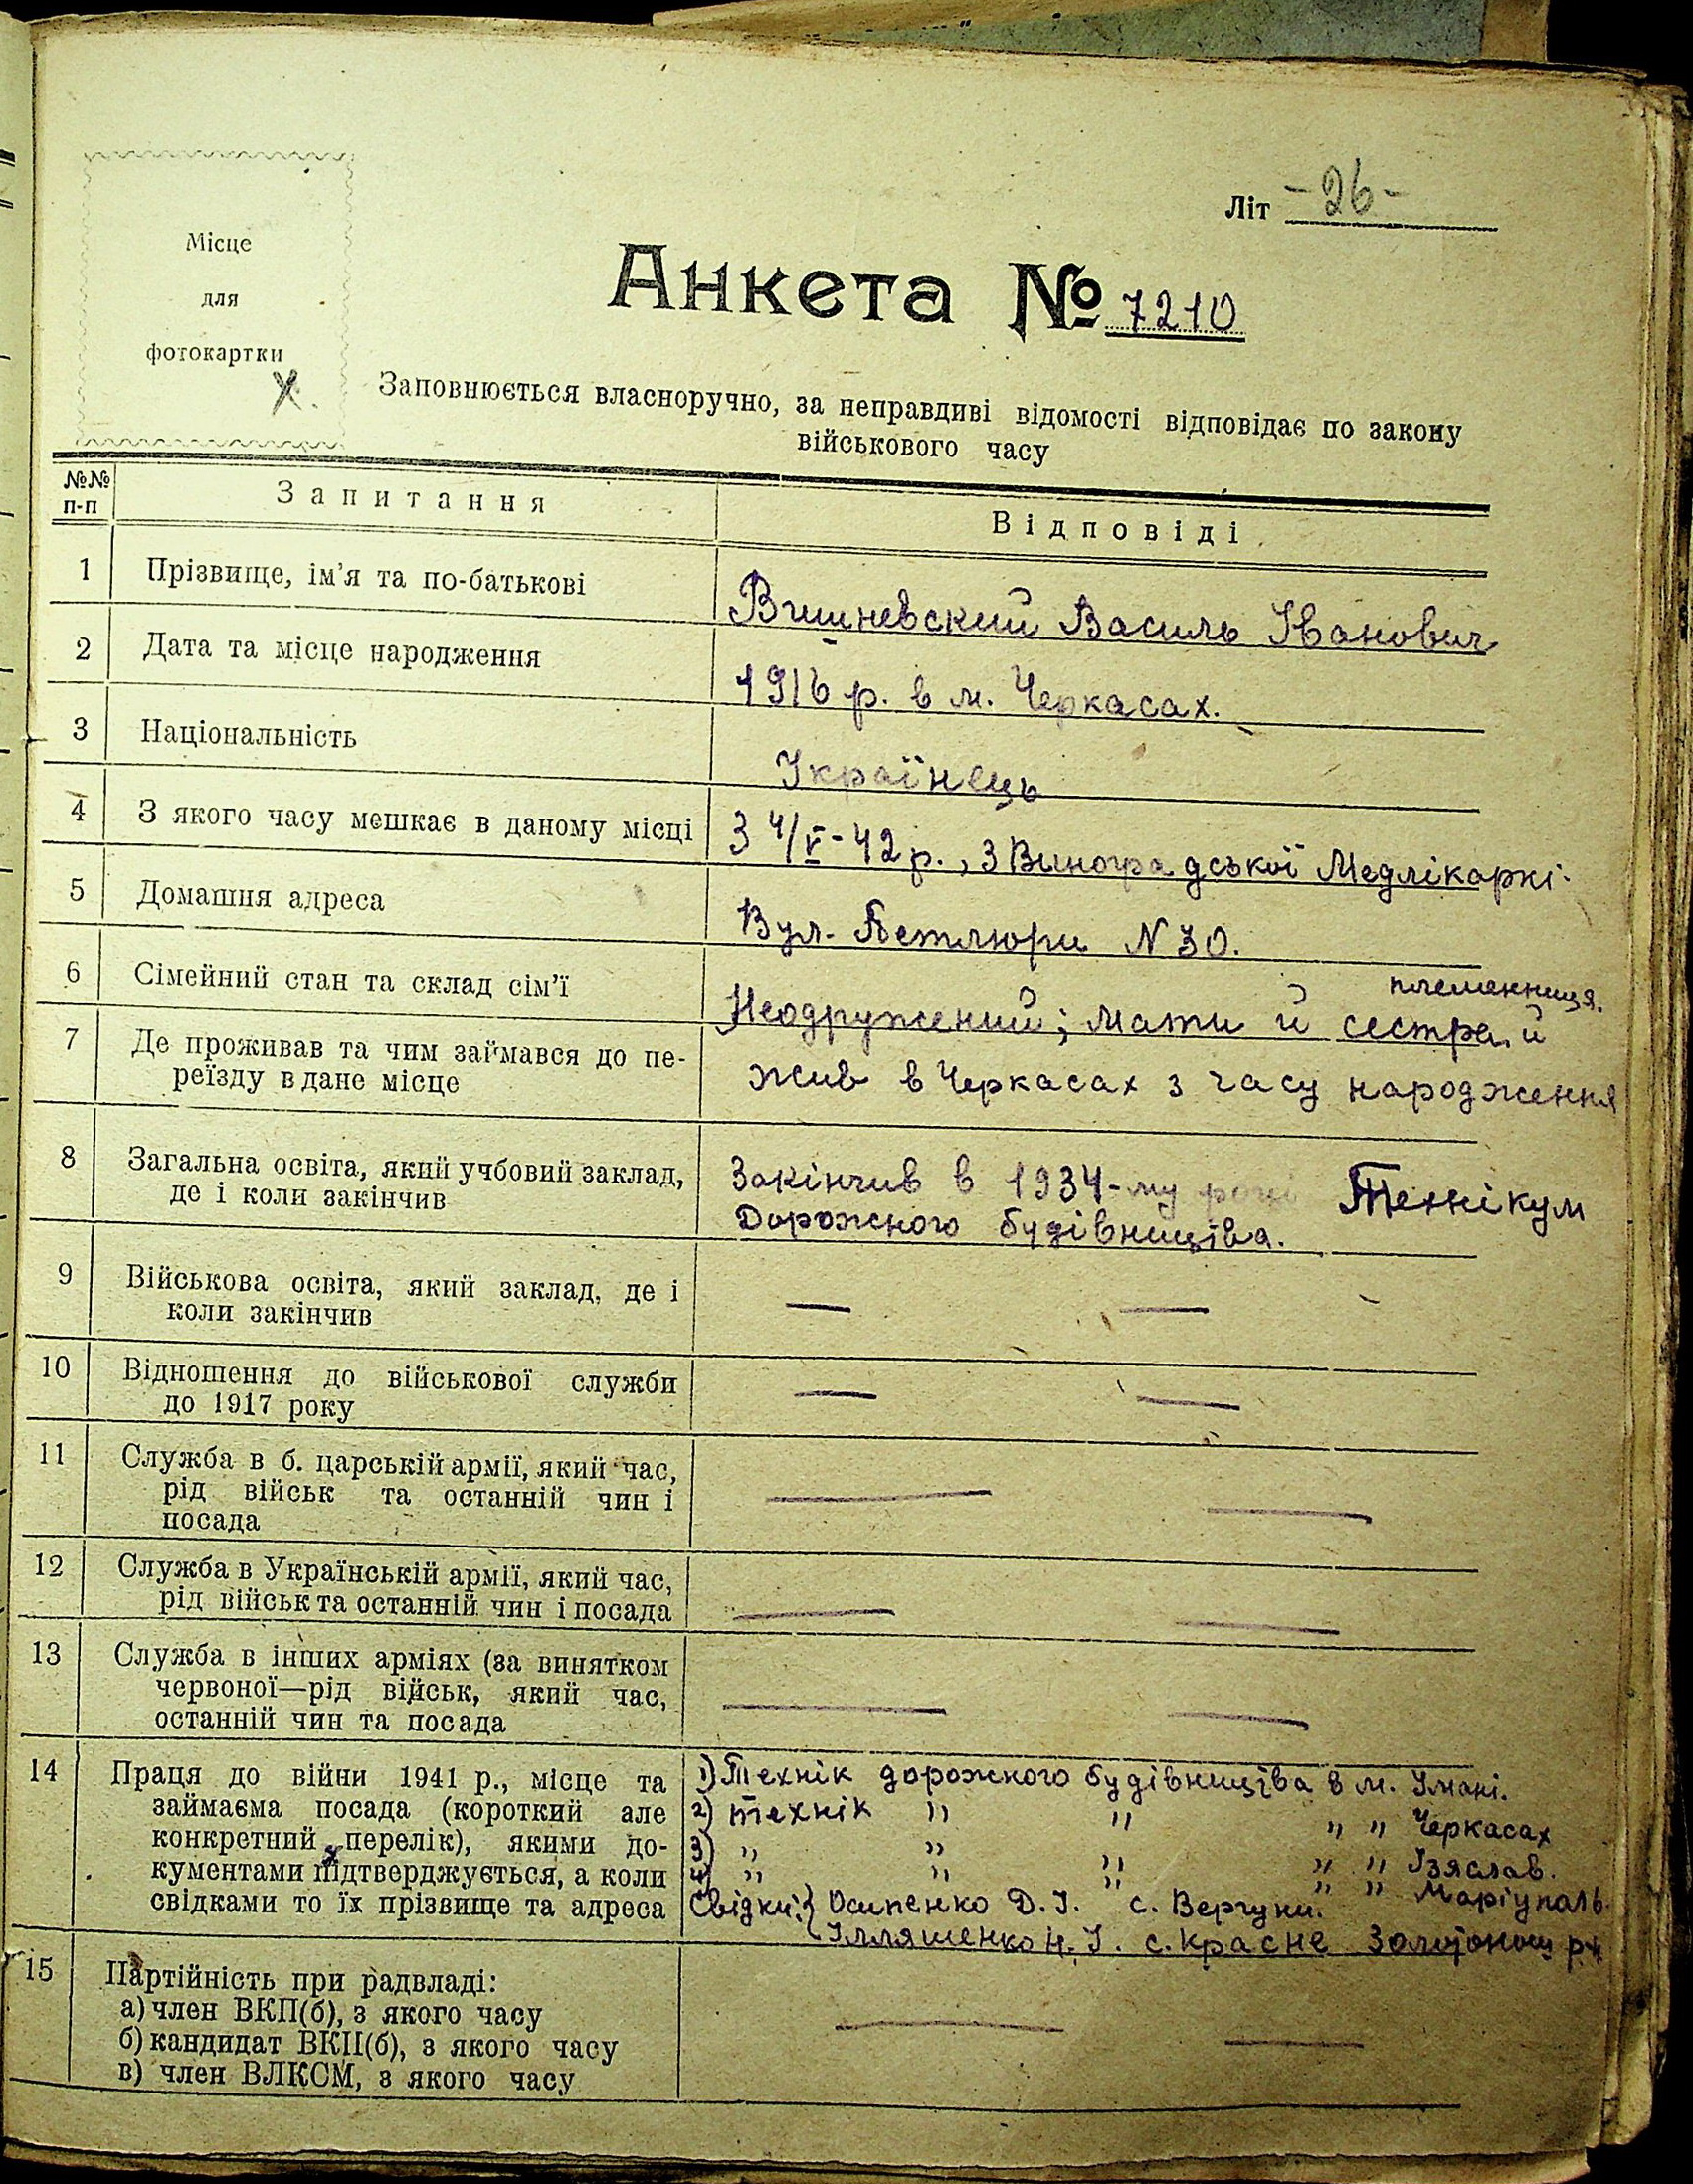 Літ -26-
Місце
для
фотокартки
Анкета № 7210
Заповнюється власноручно, за неправдиві відомості відповідає по закону
військового часу
№№
п-п
Запитання
Відповіді
1 Прізвище, ім'я та по-батькові
Вишневский Василь Іванович
2 Дата та місце народження
1916 р. в м. Черкасах.
3 Національність
Українець
4 З якого часу мешкає в даному місці
З 4/V-42 р., з Виноградської Медлікарні.
5 Домашня адреса
Вул. Петлюри N 30.
6 Сімейний стан та склад сім'ї
племенниця.
Неодружений; мати й сестра, й
7 Де проживав та чим займався до пе-
реїзду в дане місце
жив в Черкасах з часу народження
8 Загальна освіта, який учбовий заклад,
де і коли закінчив
Закінчив в 1934-му році Технікум
Дорожного будівництва.
9 Військова освіта, який заклад, де і
коли закінчив
— —
10 Відношення до військової служби
до 1917 року
— —
11 Служба в б. царській армії, який час,
рід військ та останній чин і
посада
— —
12 Служба в Українській армії, який час,
рід військ та останній чин і посада
— —
13 Служба в інших арміях (за винятком
червоної—рід військ, який час,
останній чин та посада
— —
14 Праця до війни 1941 р., місце та
займаєма посада (короткий але
конкретний перелік), якими до-
кументами підтверджується, а коли
свідками то їх прізвище та адреса
1) Технік дорожного будівництва в м. Умані.
2) технік " " " " Черкасах
3) " " " " " Ізяслав.
4) " " " " " Маріуполь.
Свідки: { Осипенко Д. І. с. Вергуни.
Ілляшенко Н. І. с. Красне Золотонош р-н
15 Партійність при радвладі:
а) член ВКП(б), з якого часу
б) кандидат ВКП(б), з якого часу
в) член ВЛКСМ, з якого часу
— —